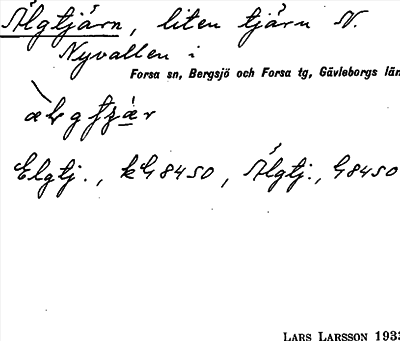 Älgtjärn, liten tjärn N.
Nyvallen i
Forsa sn, Bergsjö och Forsa tg, Gävleborgs län
Elgtj., kG 8450, Älgtj., G 8450
LARS LARSSON 1933